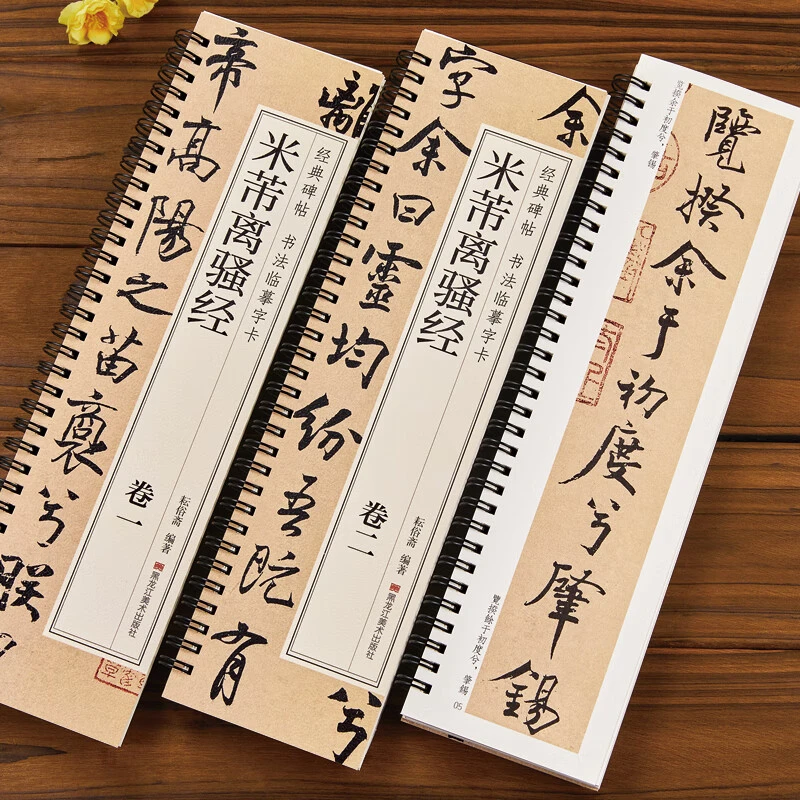 帝高陽之苗裔兮朕
離
经典碑帖 书法临摹字卡
米芾离骚经
卷一
耘俗斋 编著
黑龙江美术出版社
字余曰靈均紛吾既有
余
兮
经典碑帖 书法临摹字卡
米芾离骚经
卷二
耘俗斋 编著
黑龙江美术出版社
览揆余于初度兮，肇锡
覽揆余于初度兮肇錫
覽揆餘于初度兮，肇錫
05